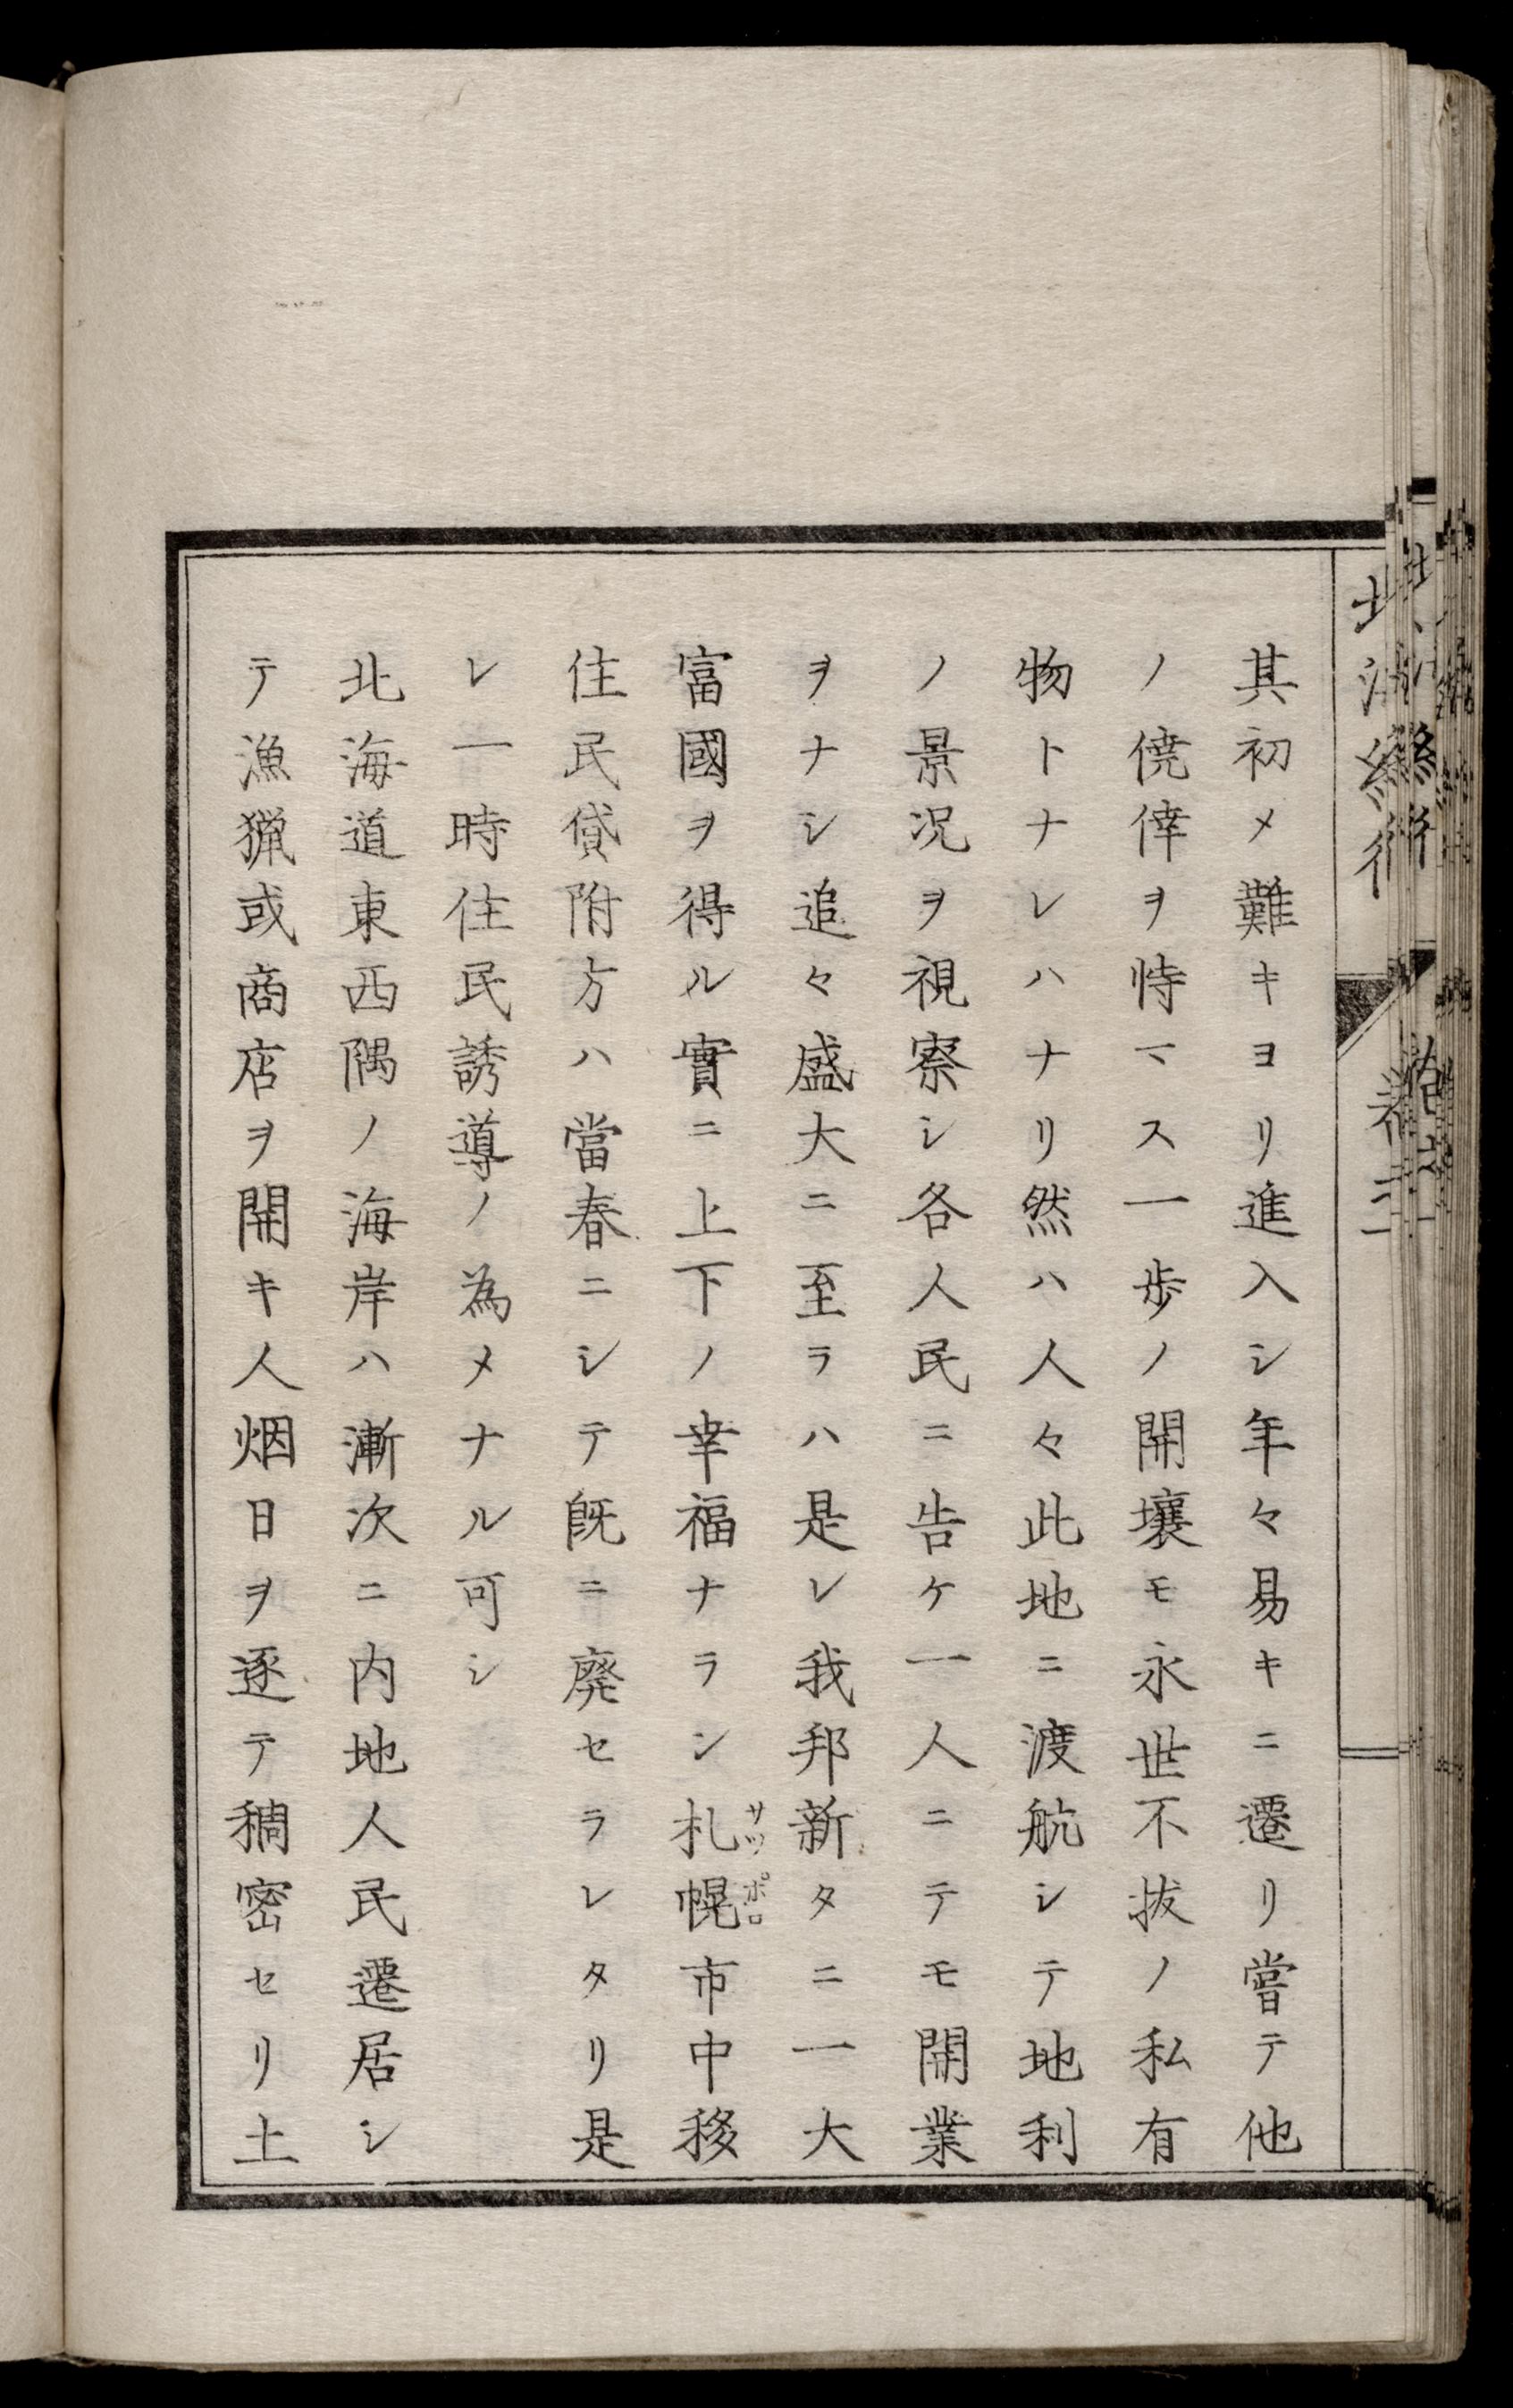 其初メ難キヨリ進入シ年々易キニ遷リ嘗テ他
ノ僥倖ヲ恃マス一歩ノ開壤モ永世不拔ノ私有
物トナレハナリ然ハ人々此地ニ渡航シテ地利
ノ景況ヲ視察シ各人民ニ告ケ一人ニテモ開業
ヲナシ追々盛大ニ至ラハ是レ我邦新タニ一大
富國ヲ得ル實ニ上下ノ幸福ナラン札幌市中移
サツポロ
住民貸附方ハ當春ニシテ既ニ廃セラレタリ是
レ一時住民誘導ノ為メナル可シ
北海道東西隅ノ海岸ハ漸次ニ内地人民遷居シ
テ漁猟或商店ヲ開キ人烟日ヲ逐テ稠密セリ土